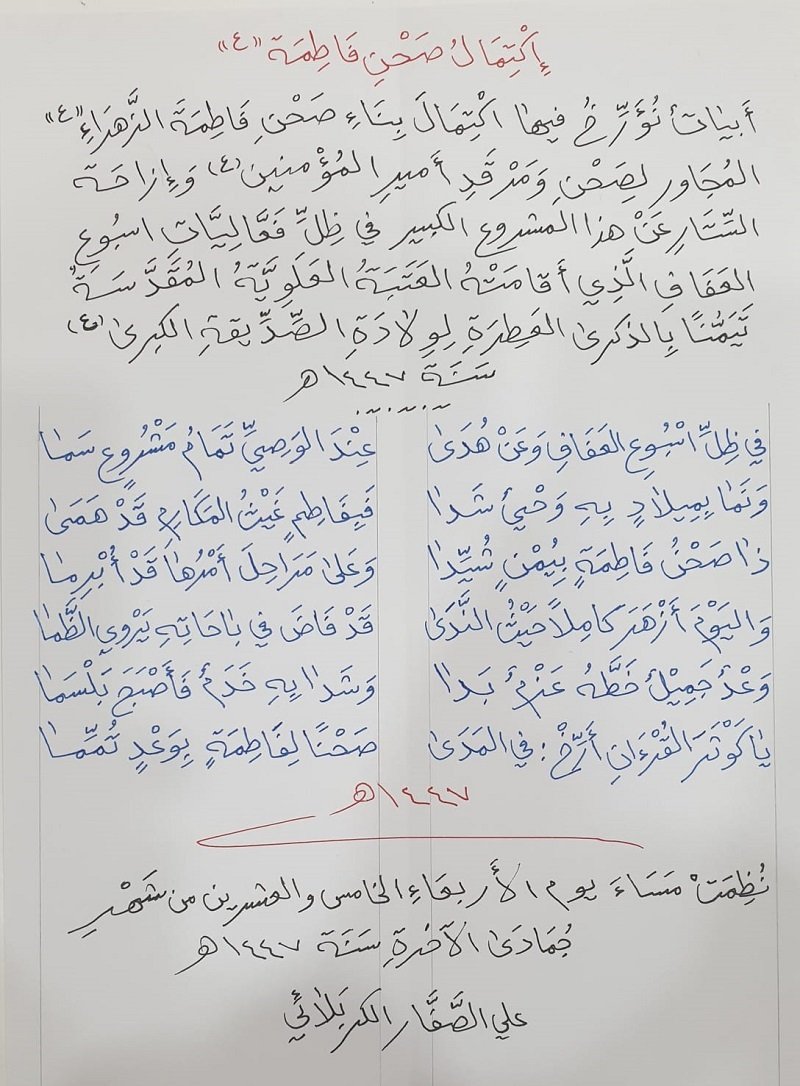 إِكْتِمَالُ صَحْنِ فَاطِمَة "(ع)"
أبياتٌ نُؤَرِّخُ فيها اكْتِمَالَ بِنَاءِ صَحْنِ فَاطِمَةَ الزَّهرَاءِ "(ع)"
المُجَاور لِصَحْنِ وَمَرْقَدِ أَميرِ المُؤْمنين (ع) وَإِزاحَة
السِّتَارِ عَنْ هذا المشروع الكبير في ظِلِّ فَعَّالِيَّات اسبُوع
العَفَافِ الَّذِي أَقَامَتْهُ العَتَبَةُ العَلَوِيَّةُ المُقَدَّسَةُ
تَيَمُّنًا بِالذكرىٰ العَطِرَةِ لِوِلَادَةِ الصِّدِّيقةِ الكبرىٰ (ع)
سَنَة ١٤٤٧هـ
في ظِلِّ اسْبُوعِ العَفَافِ وَعَنْ هُدَىٰ عِنْدَ الوَصِيِّ تَمَامُ مَشْرُوعٍ سَمَا
وَنَمَا بِمِيلَادٍ بِهِ وَحْيٌ شَدا فَبِفَاطِمٍ غَيْثُ المَكَارِمِ قَدْ هَمَىٰ
ذا صَحْنُ فَاطِمَةٍ بِيُمْنٍ شُيِّدا وَعَلىٰ مَرَاحِلَ أَمْرُها قَدْ أُبْرِما
وَاليَوْمَ أَزْهَرَ كامِلاً حَيْثُ النَّدَىٰ قَدْ فَاضَ في باحَاتِهِ يَرْوِي الظَّمٰا
وَعْدٌ جَمِيْلٌ خَطَّهُ عَزْمٌ بَدا وَشَدا بِهِ خَدَمٌ فَأَصْبَحَ بَلْسَما
يا كَوْثَرَ القُرْءَانِ أَرِّخْ: في المَدَىٰ صَحْنًا لِفَاطِمَةٍ بِوَعْدٍ تُمِّمَا
١٤٤٧هـ
نُظِمَتْ مَسَاءَ يوم الأَربعَاءِ الخامس والعشرين من شَهْرِ
جُمَادَىٰ الآخرةِ سَنَة ١٤٤٧هـ
علي الصَّفَّار الكربَلائي